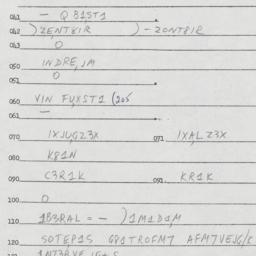 041 — Q81ST1
042 )ZENT8IR )-ZONT8IR
O
050 INDRE,IM
051 O
060 VIN FUXST1 (205
061 —
070 1XJUGZ3X 071 1XALZ3X
080 K81N
090 C3R1K 091 KR1K
100 O
110 1B3RAL = — )1M1D1M
120 SOTEP1S G81TROFM7 AFM7VEJG/S